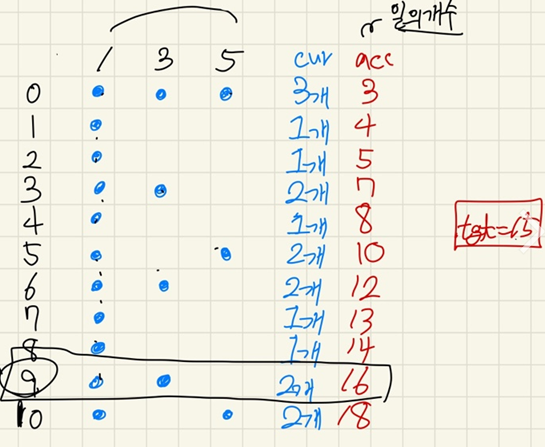 일의개수
1 3 5 cur acc
0 3개 3
1 1개 4
2 1개 5
3 2개 7
4 1개 8
5 2개 10
6 2개 12
7 1개 13
8 1개 14
9 2개 16
10 2개 18
tgt=15